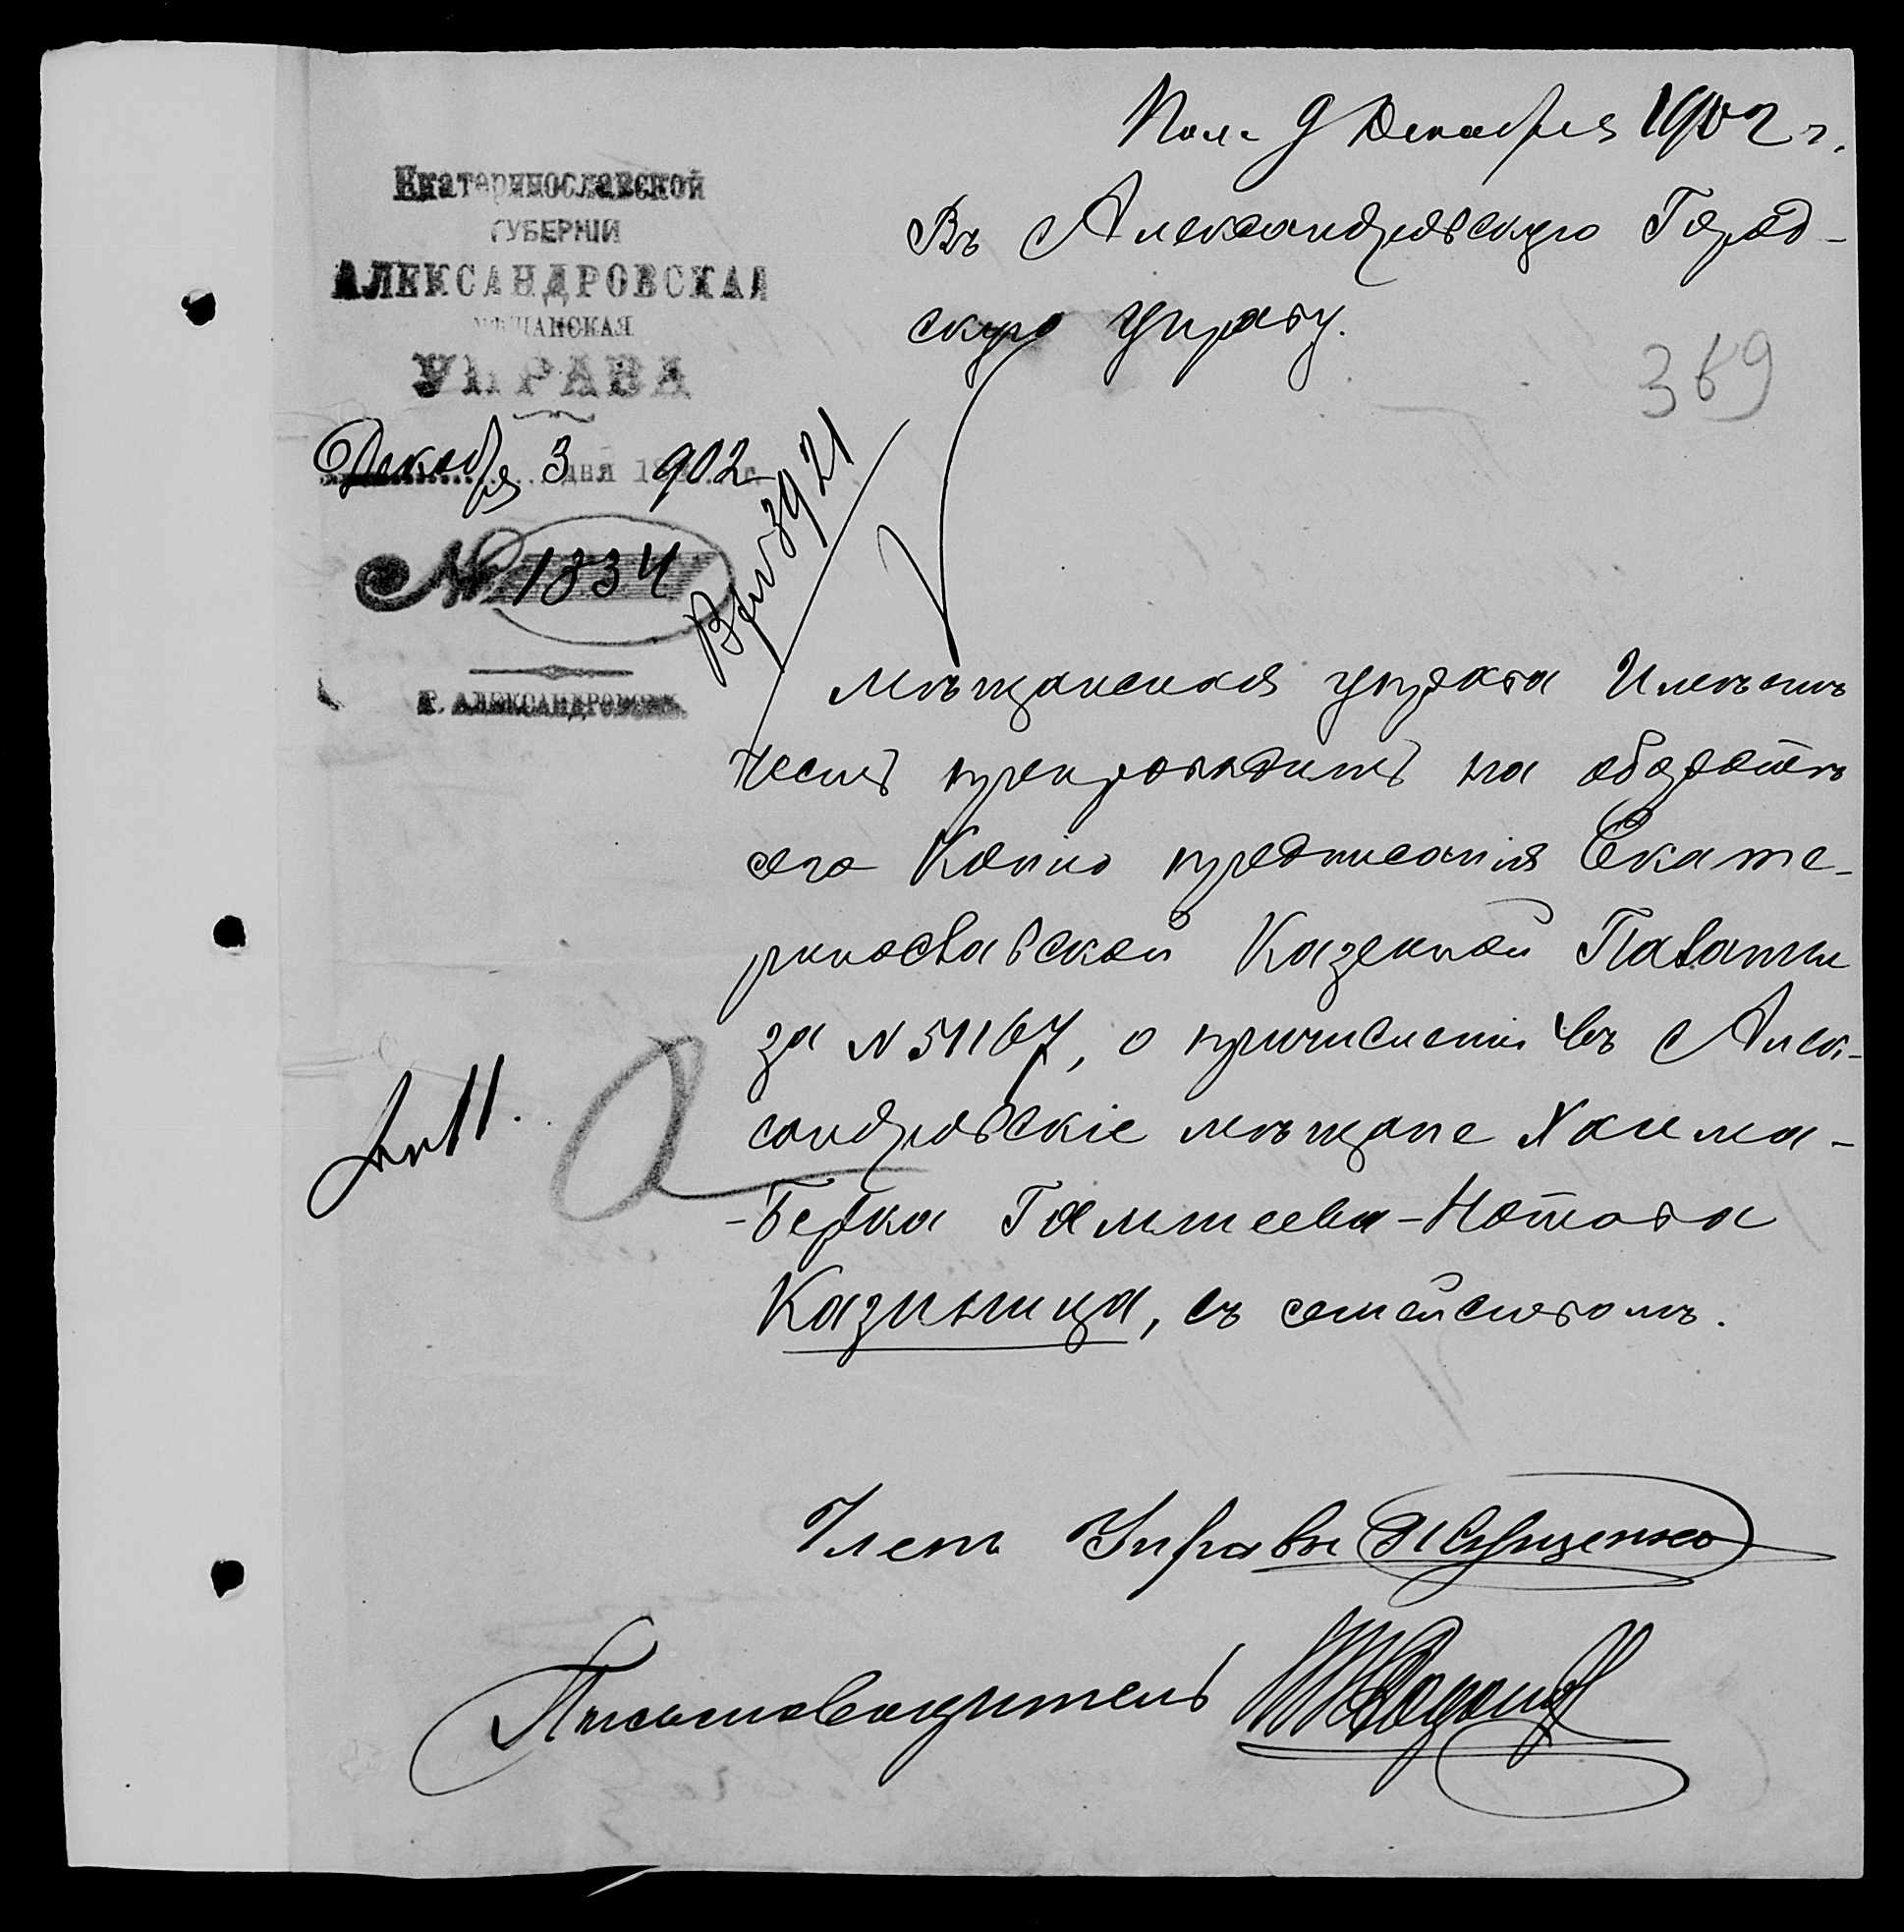 Пол. 9 Декабря 1902 г.
Екатеринославской
ГУБЕРНІИ
АЛЕКСАНДРОВСКАЯ
МѢЩАНСКАЯ
УПРАВА
Декабря 3 дня 1902 г.
№ 1834
Г. АЛЕКСАНДРОВСКЪ
Въ Александровскую Город-
скую Управу.
369
Вх № 3921
Мѣщанская управа Имѣетъ
честь препроводить на оборотѣ
сего Копію предписанія Екате-
ринославской Казенной Палаты
за N 51167, о причисленіи въ Алек-
сандровскіе мѣщане Хаима-
-Берка Гамшеева-Нотова
Казиница, съ семействомъ.
Членъ Управы
Письмоводитель